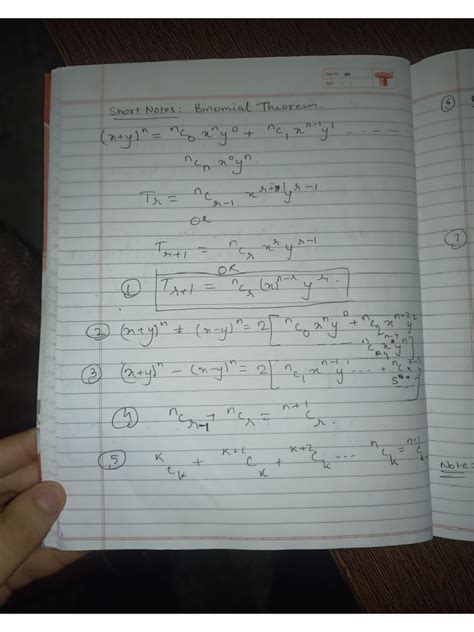 Short Notes: Binomial Theorem.
(x+y)^n = ^nC_0 x^n y^0 + ^nC_1 x^{n-1} y^1 - - - -
^nC_n x^0 y^n
T_r = ^nC_{r-1} y^{r-1}
OR
T_{r+1} = ^nC_r x^r y^{r-1}
OR
① T_{r+1} = ^nC_r (x)^{n-r} y^r.
② (x+y)^n + (x-y)^n = 2[ ^nC_0 x^n y^0 + ^nC_2 x^{n-2} y^2
③ (x+y)^n - (x-y)^n = 2[ ^nC_1 x^{n-1} y^1 - - - +
④ ^nC_{r-1} + ^nC_r = ^{n+1}C_r.
⑤ ^kC_k + ^{k+1}C_k + ^{k+2}C_k - - - ^nC_k =
Note: